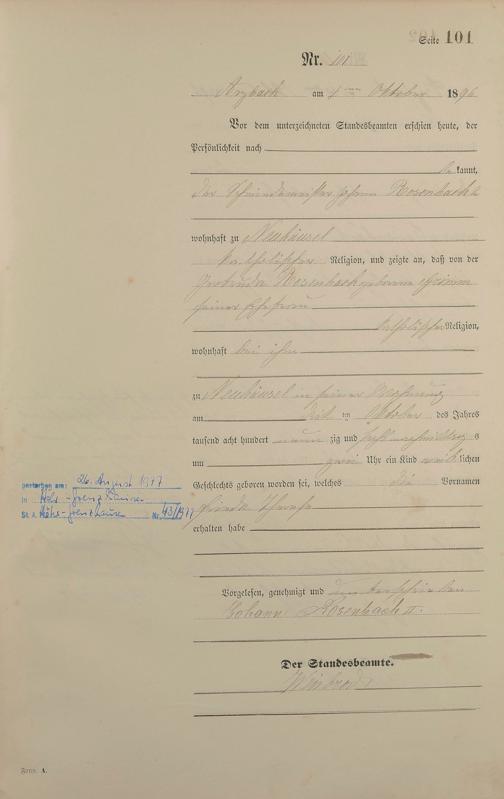 Seite 101
Nr. 101
Arzbach am Oktober 1896
Vor dem unterzeichneten Standesbeamten erschien heute, der
Persönlichkeit nach
be kannt,
der Johann Rosenbach 2
wohnhaft zu Neuhäusel
katholischer Religion, und zeigte an, daß von der
Rosenbach geborene Grimm
seiner Ehefrau
katholischer Religion,
wohnhaft bei ihm
zu Neuhäusel in seiner Wohnung
am ten Oktober des Jahres
tausend acht hundert neun zig und sechs nachmittag s
um zwei Uhr ein Kind weib lichen
Geschlechts geboren worden sei, welches die Vornamen
erhalten habe
gestorben am: 26. August 1977
in Höhr-Grenzhausen
St. A. Höhr-Grenzhausen Nr. 43/1977
Vorgelesen, genehmigt und unterschrieben
Johann Rosenbach II.
Der Standesbeamte.
Form. A.